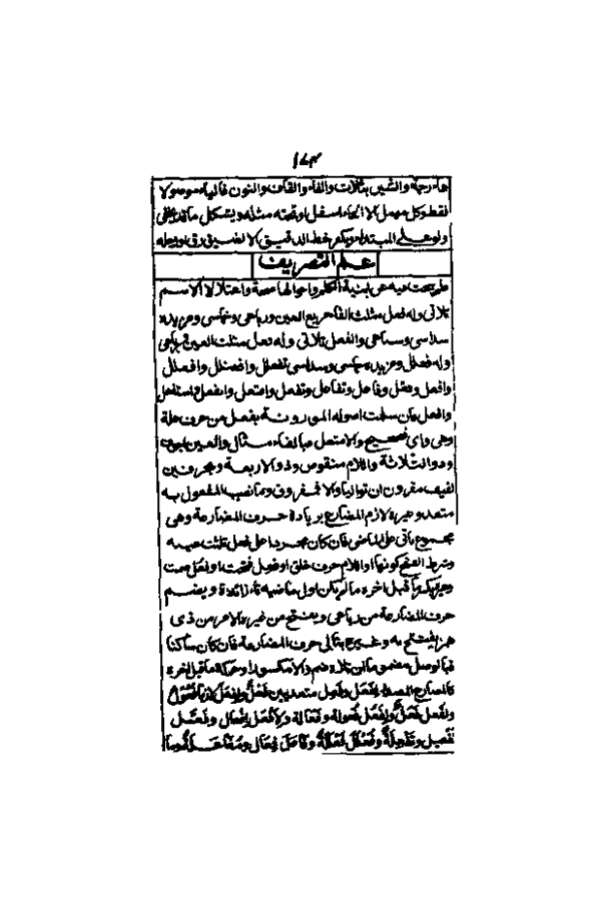 ١٧٣
هاء رحمة والشين بثلاث والفاء والقاف والنون فالياء موصولا
فقط وكل مهمل الا الحاء اسفل او تحته مثله ويشكل ما قد يخفى
ولو على المبتدى ويكره خط الدقيق الا لضيق رق او رحلة
علم التصريف
علم يبحث فيه عن ابنية الكلم واحوالها صحة واعتلالا الاسم
ثلاثي وله فعل مثلث الفاء مربع العين ورباعي وخماسي ومزيده
سداسي وسباعي والفعل ثلاثي وله فعل مثلث العين ورباعي
وله فعلل ومزيده خماسي وسداسي تفعلل وافعنلل وافعلل
وافعل وفعل وفاعل وتفاعل وتفعل وافتعل وانفعل واستفعل
وافعل فان سلمت اصوله الموزونة بفعل من حرف علة
وهي واي فصحيح والا معتل فبالفاء مثال والعين اجوف
وذو الثلاثة واللام منقوص وذو الاربعة وبحرفين
لفيف مقرون ان تواليا والا فمفروق وما نصب المفعول به
متعد وغيره لازم المضارع بزيادة حرف المضارعة وهي
مجموع ناتي على الماضي فان كان مجردا على فعل ثلثت عينه
وشرط الفتح كونها او اللام حرف حلق او فعل فتحت او فعل ضمت
وغيره يكسر ما قبل اخره ما لم يكن اول ماضيه تاء زائدة ويضم
حرف المضارعة من رباعي ويفتح من غيره الامر من ذي
همز يفتتح به وغيره بتالي حرف المضارعة فان كان ساكنا
فبالوصل مضموما ان تلاه ضم والا مكسورا وحركة ما قبل اخره
كالمضارع المصدر لفعل وفعل متعديين فعل ولفعل لازما فعول
ولفعل فعل ولفعل فعولة وفعالة ولافعل افعال وفعل
تفعيل وتفعلة وفعلل فعللة وفاعل فعال ومفاعلة وما